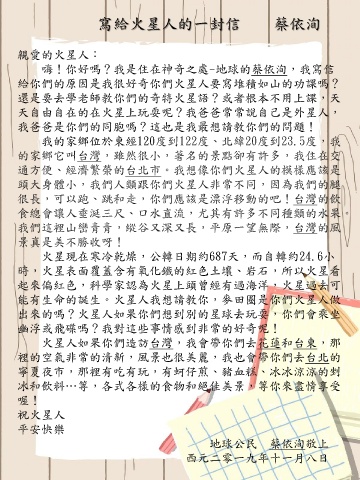 寫給火星人的一封信　　蔡依洵
親愛的火星人：
嗨！你好嗎？我是住在神奇之處-地球的蔡依洵，我寫信
給你們的原因是我很好奇你們火星人要寫堆積如山的功課嗎？
還是要去學老師教你們的奇特火星語？或者根本不用上課，天
天自由自在的在火星上玩耍呢？我爸爸常常說自己是外星人，
我爸爸是你們的同胞嗎？這也是我最想請教你們的問題！
我的家鄉位於東經120度到122度、北緯20度到23.5度，我
的家鄉它叫台灣，雖然很小，著名的景點卻有許多，我住在交
通方便、經濟繁榮的台北市。我想像你們火星人的模樣應該是
頭大身體小，我們人類跟你們火星人非常不同，因為我們的腿
很長，可以跑、跳和走，你們應該是漂浮移動的吧！台灣的飲
食總會讓人垂涎三尺、口水直流，尤其有許多不同種類的水果。
我們這裡山巒青青，縱谷又深又長，平原一望無際，台灣的風
景真是美不勝收呀！
火星現在寒冷乾燥，公轉日期約687天，而自轉約24.6小
時，火星表面覆蓋含有氧化鐵的紅色土壤、岩石，所以火星看
起來偏紅色，科學家認為火星上頭曾經有過海洋，火星過去可
能有生命的誕生。火星人我想請教你，麥田圈是你們火星人做
出來的嗎？火星人如果你們想到別的星球去玩耍，你們會乘坐
幽浮或飛碟嗎？我對這些事情感到非常的好奇呢！
火星人如果你們造訪台灣，我會帶你們去花蓮和台東，那
裡的空氣非常的清新，風景也很美麗，我也會帶你們去台北的
寧夏夜市，那裡有吃有玩，有蚵仔煎、豬血糕、冰冰涼涼的刨
冰和飲料…等，各式各樣的食物和絕佳美景，等你來盡情享受
喔！
祝火星人
平安快樂
地球公民　蔡依洵敬上
西元二零一九年十一月八日